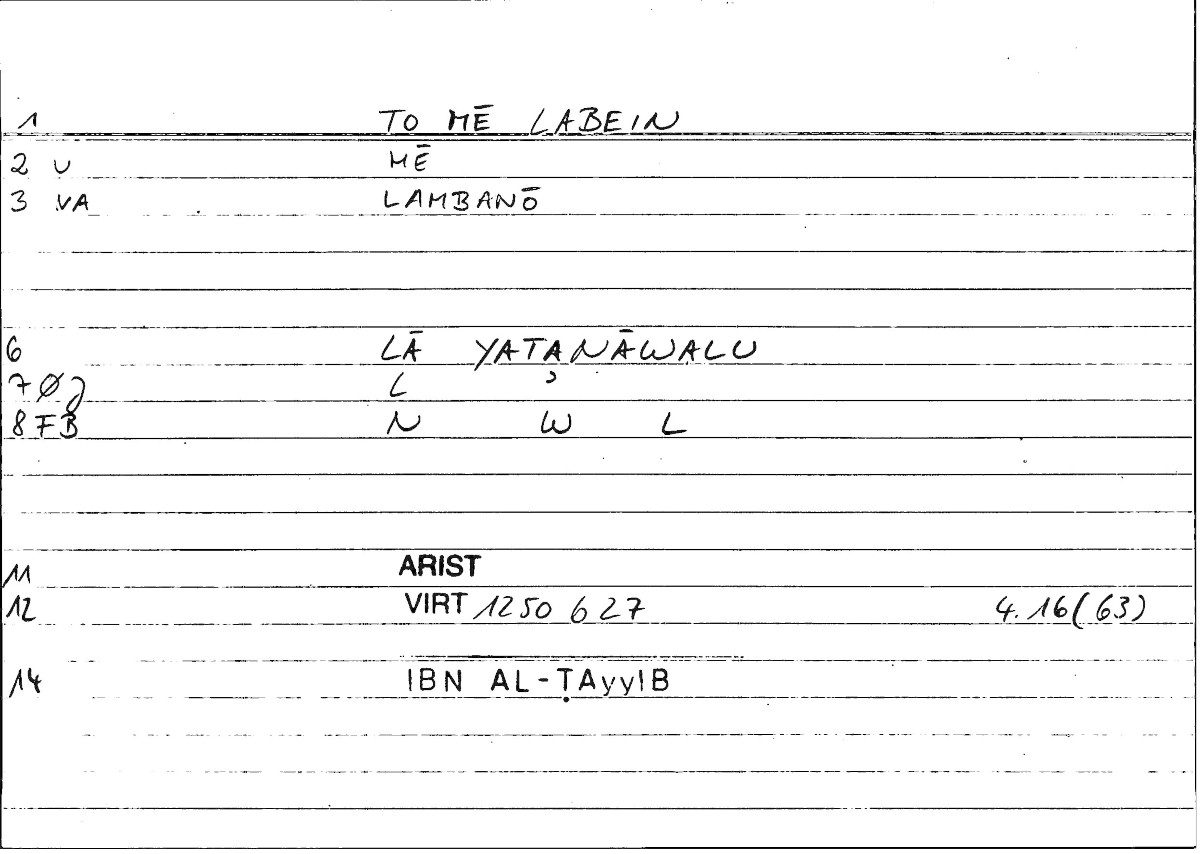 1 TO MĒ LABEIN
2 U MĒ
3 VA LAMBANŌ
6 LĀ YATANĀWALU
7 Ø L ʾ
8 FB N W L
11 ARIST
12 VIRT 1250 b 27 4.16(63)
14 IBN AL-ṬAyyIB